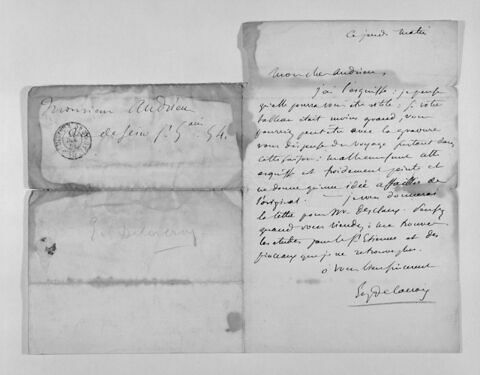 Monsieur Andrieu
de Seine St Germain 54.
Delacroix
ce jeudi matin
Mon cher Andrieu,
J'ai l'esquisse : je pense
qu'elle pourra vous être utile ; si votre
tableau était moins grand, vous
pourriez peut être avec la gravure
vous dispenser du voyage surtout dans
cette saison : malheureusement cette
esquisse est froidement peinte et
ne donne qu'une idée affaiblie de
l'original. Je vous donnerai
la lettre pour Mr. Desclaux. Pensez
quand vous viendrez, à me trouver
les études pour le St Etienne et des
pinceaux que je ne retrouve plus.
à vous bien sincèrement
Eug Delacroix